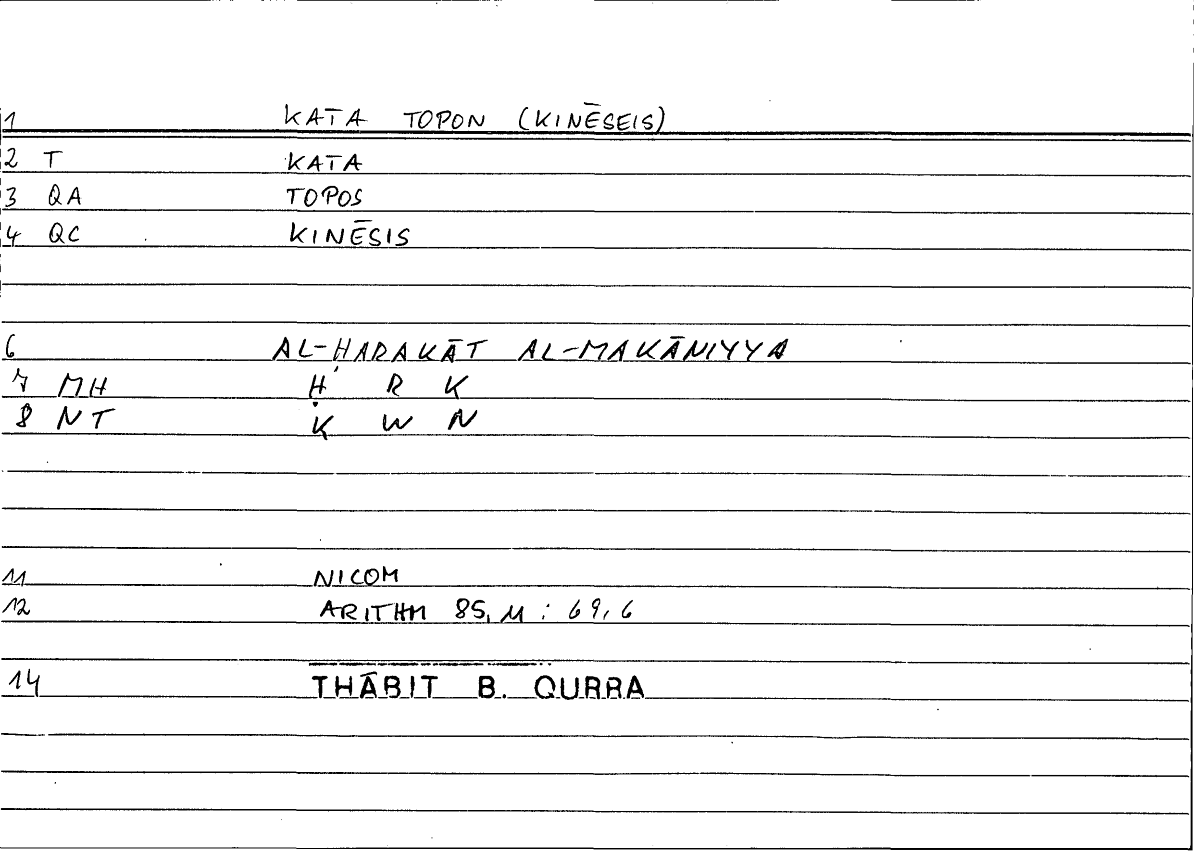 1 KATA TOPON (KINĒSEIS)
2 T KATA
3 QA TOPOS
4 QC KINĒSIS
6 AL-ḤARAKĀT AL-MAKĀNIYYA
7 MH Ḥ R K
8 NT K W N
11 NICOM
12 ARITHM 85,11 : 69,6
14 THĀBIT B. QURRA